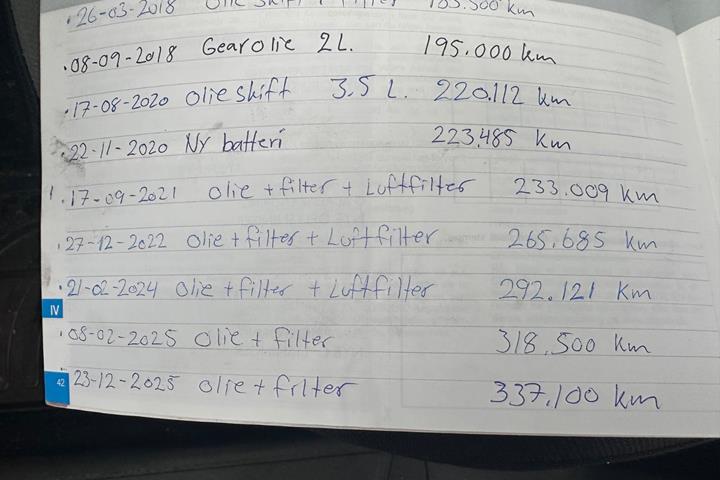 · 26-03-2018 Olie skift + Filter 183.500 km
· 08-09-2018 Gearolie 2L. 195.000 km
· 17-08-2020 Olie skift 3,5 L. 220.112 km
· 22-11-2020 Ny batteri 223.485 km
· 17-09-2021 Olie + filter + Luftfilter 233.009 km
· 27-12-2022 Olie + filter + Luftfilter 265.685 km
· 21-02-2024 Olie + filter + Luftfilter 292.121 km
IV
· 08-02-2025 Olie + filter 318.500 km
42
· 23-12-2025 Olie + filter 337.100 km